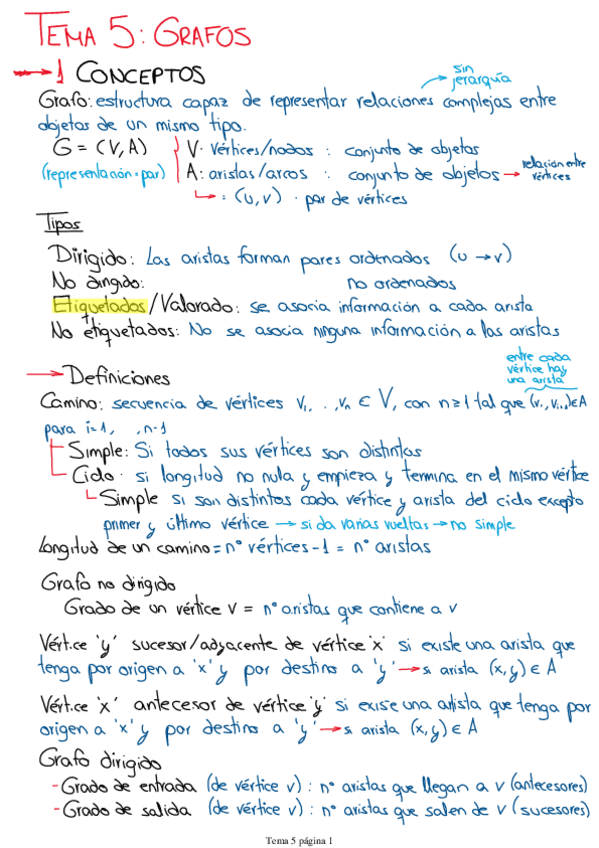 TEMA 5: GRAFOS
→ 1 CONCEPTOS
sin jerarquía
Grafo: estructura capaz de representar relaciones complejas entre
objetos de un mismo tipo.
G = (V, A) V: vértices/nodos : conjunto de objetos
(representación: par) A: aristas/arcos : conjunto de objetos → relación entre vértices
↳ : (u, v) : par de vértices
Tipos
Dirigido: Las aristas forman pares ordenados (u → v)
No dirigido: no ordenados
Etiquetados/Valorado: se asocia información a cada arista
No etiquetados: No se asocia ninguna información a las aristas
entre cada
vértice hay
una arista
→ Definiciones
Camino: secuencia de vértices v₁, . , vₙ ∈ V, con n≥1 tal que (vᵢ, vᵢ₊₁) ∈ A
para i=1, ,n-1
Simple: Si todos sus vértices son distintos
Ciclo: si longitud no nula y empieza y termina en el mismo vértice
↳ Simple si son distintos cada vértice y arista del ciclo excepto
primer y último vértice → si da varias vueltas → no simple
Longitud de un camino = nº vértices - 1 = nº aristas
Grafo no dirigido
Grado de un vértice v = nº aristas que contiene a v
Vértice 'y' sucesor/adyacente de vértice 'x' si existe una arista que
tenga por origen a 'x' y por destino a 'y' → si arista (x,y) ∈ A
Vértice 'x' antecesor de vértice 'y' si exise una arista que tenga por
origen a 'x' y por destino a 'y' → si arista (x,y) ∈ A
Grafo dirigido
- Grado de entrada (de vértice v) : nº aristas que llegan a v (antecesores)
- Grado de salida (de vértice v) : nº aristas que salen de v (sucesores)
Tema 5 página 1